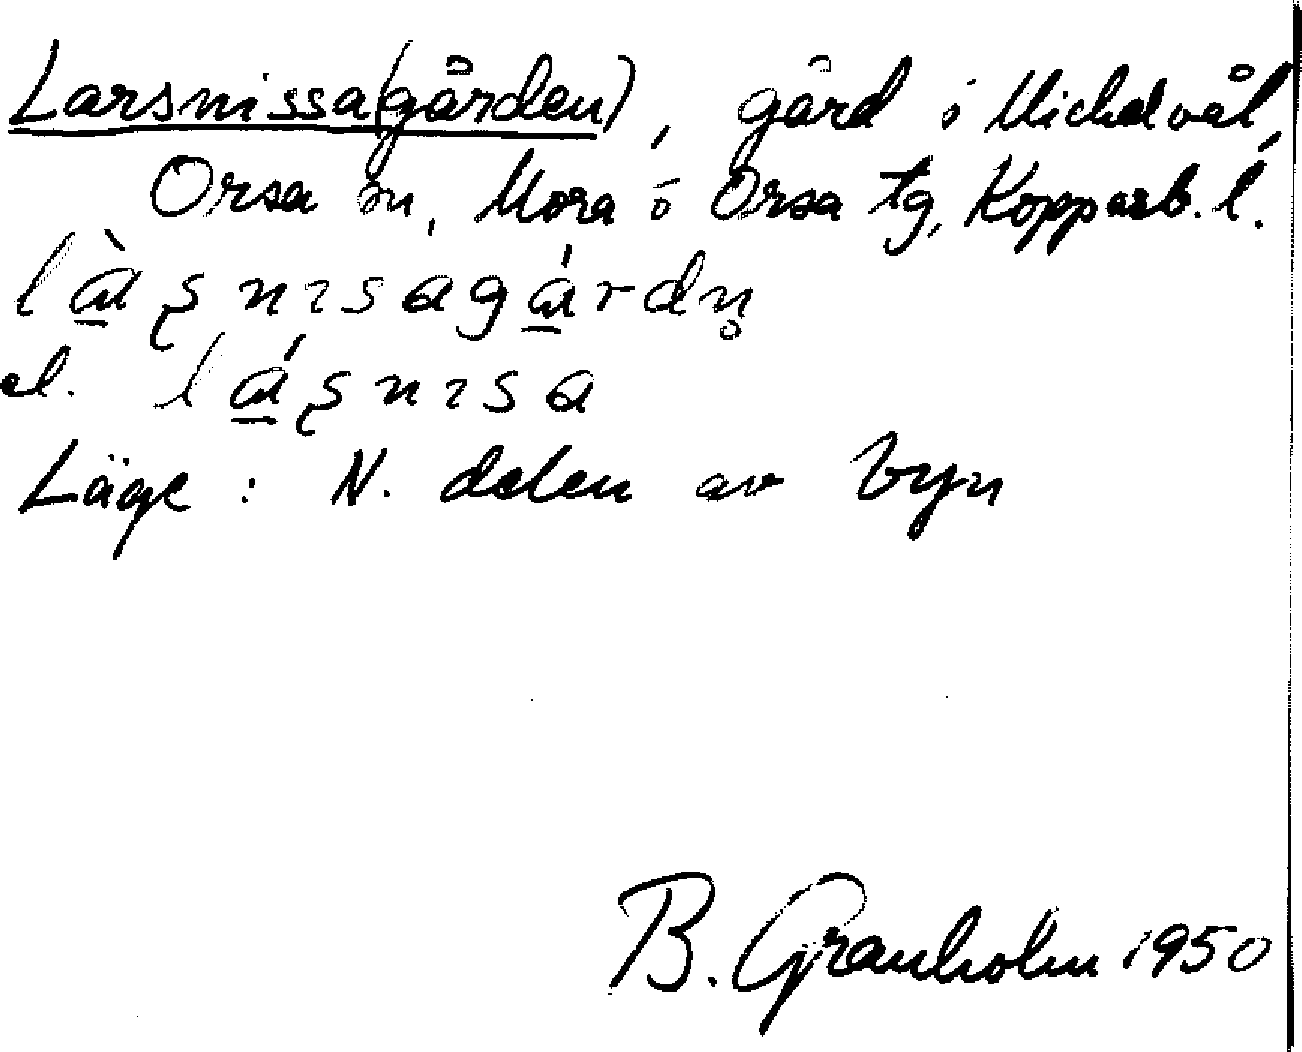 Larsnissa(gården), gård i Michelvål,
Orsa sn, Mora o Orsa tg, Kopparb. l.
là̱ʂnɪsagá̱rdn̥
el. lá̱ʂnɪsa
Läge: N. delen av byn
B. Granholm 1950